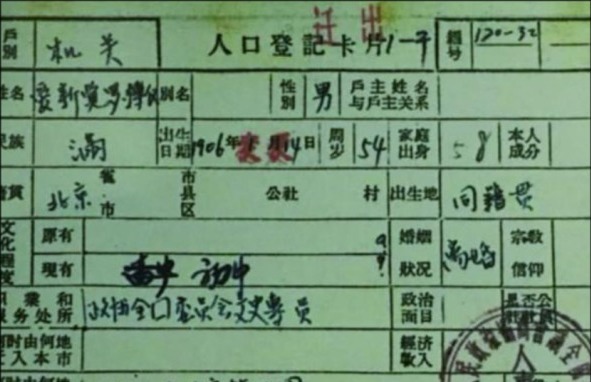 迁出
戶别 机关 人口登記卡片1-平 編号 120-32
姓名 爱新觉罗 别名 性别 男 戶主姓名与戶主关系
民族 满 出生日期 1906年 月14日 周岁 54 家庭出身 本人成分
籍貫 北京 省市 市县区 公社 村 出生地 同籍贯
文化程度 原有 婚姻狀况 宗教信仰
現有 初中
职業和服务处所 政协全 委员会文史專员 政治面目 是否公社社員
何时由何地迁入本市 經济收入
何时由何地